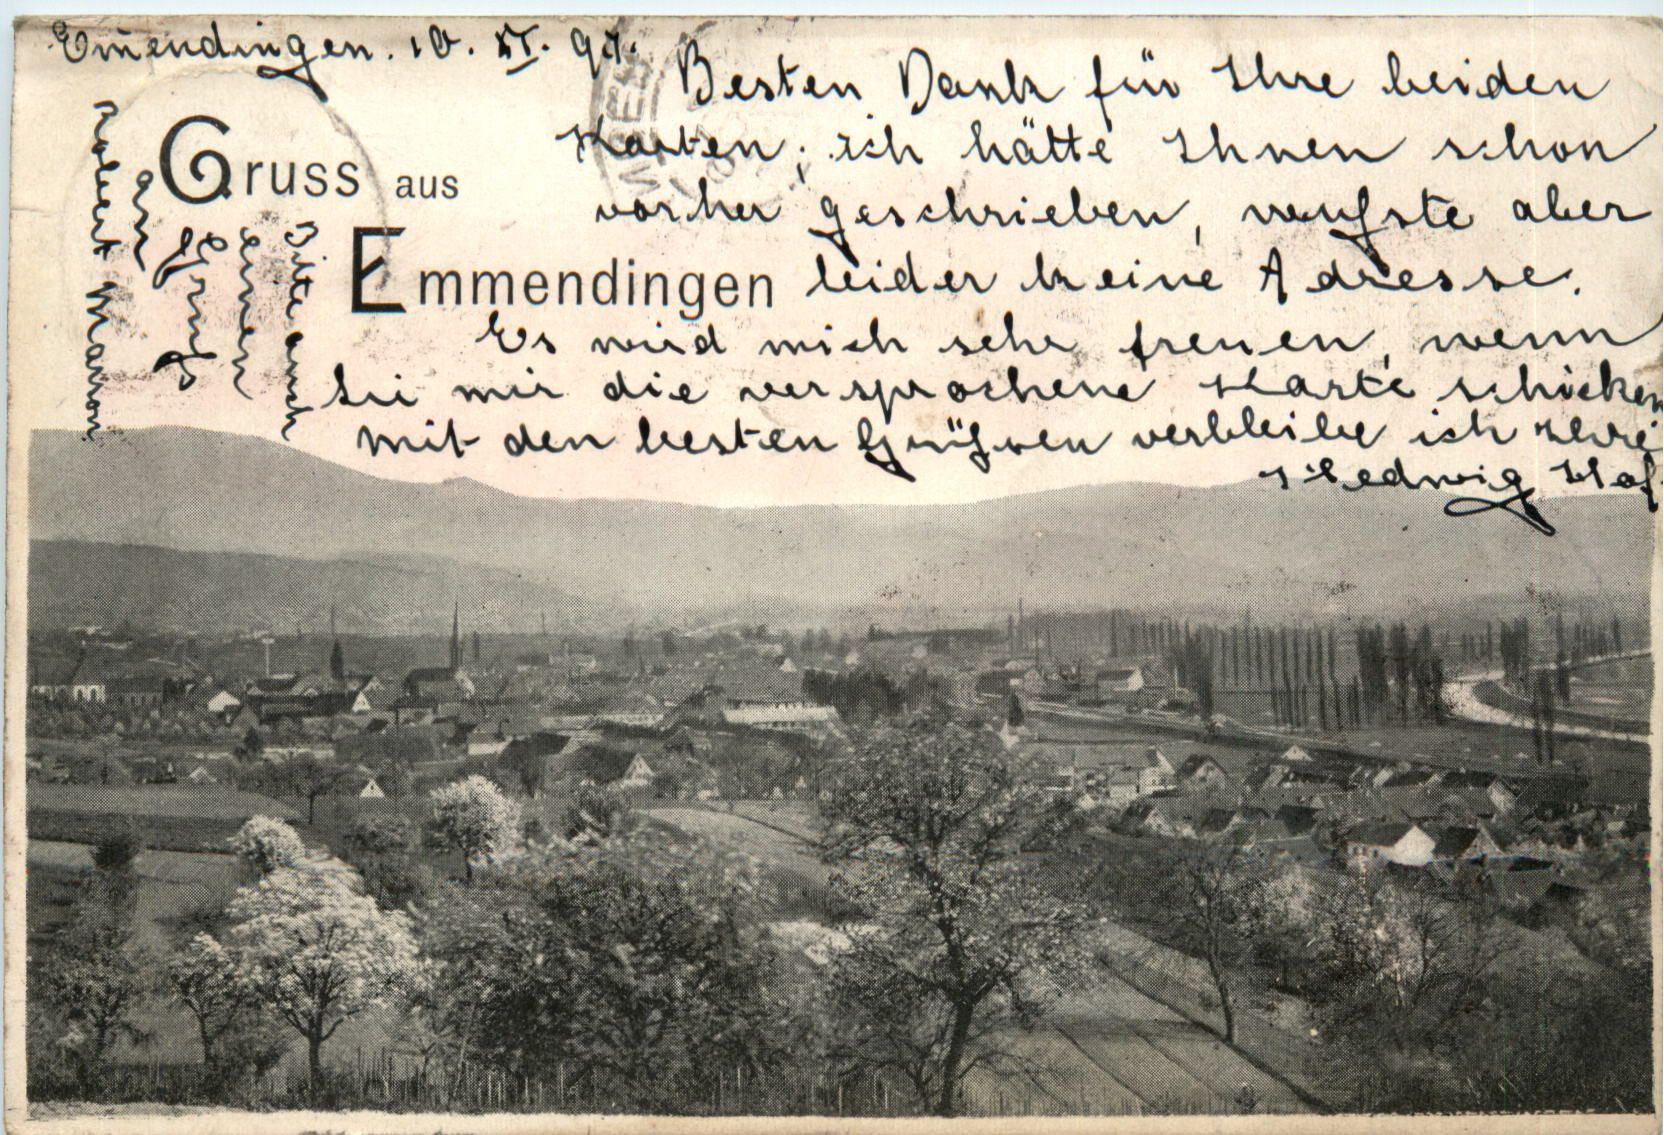 Emendingen. 10. XI. 97.
Gruss aus
Emmendingen
Besten Dank für Ihre beiden
Karten, ich hätte Ihnen schon
vorher geschrieben, wußte aber
leider keine Adresse.
Es wird mich sehr freuen, wenn
Sie mir die versprochene Karte schicken
mit den besten Grüßen verbleibe ich Ihre
Hedwig
Bitte auch
einen
Gruß
an
Robert